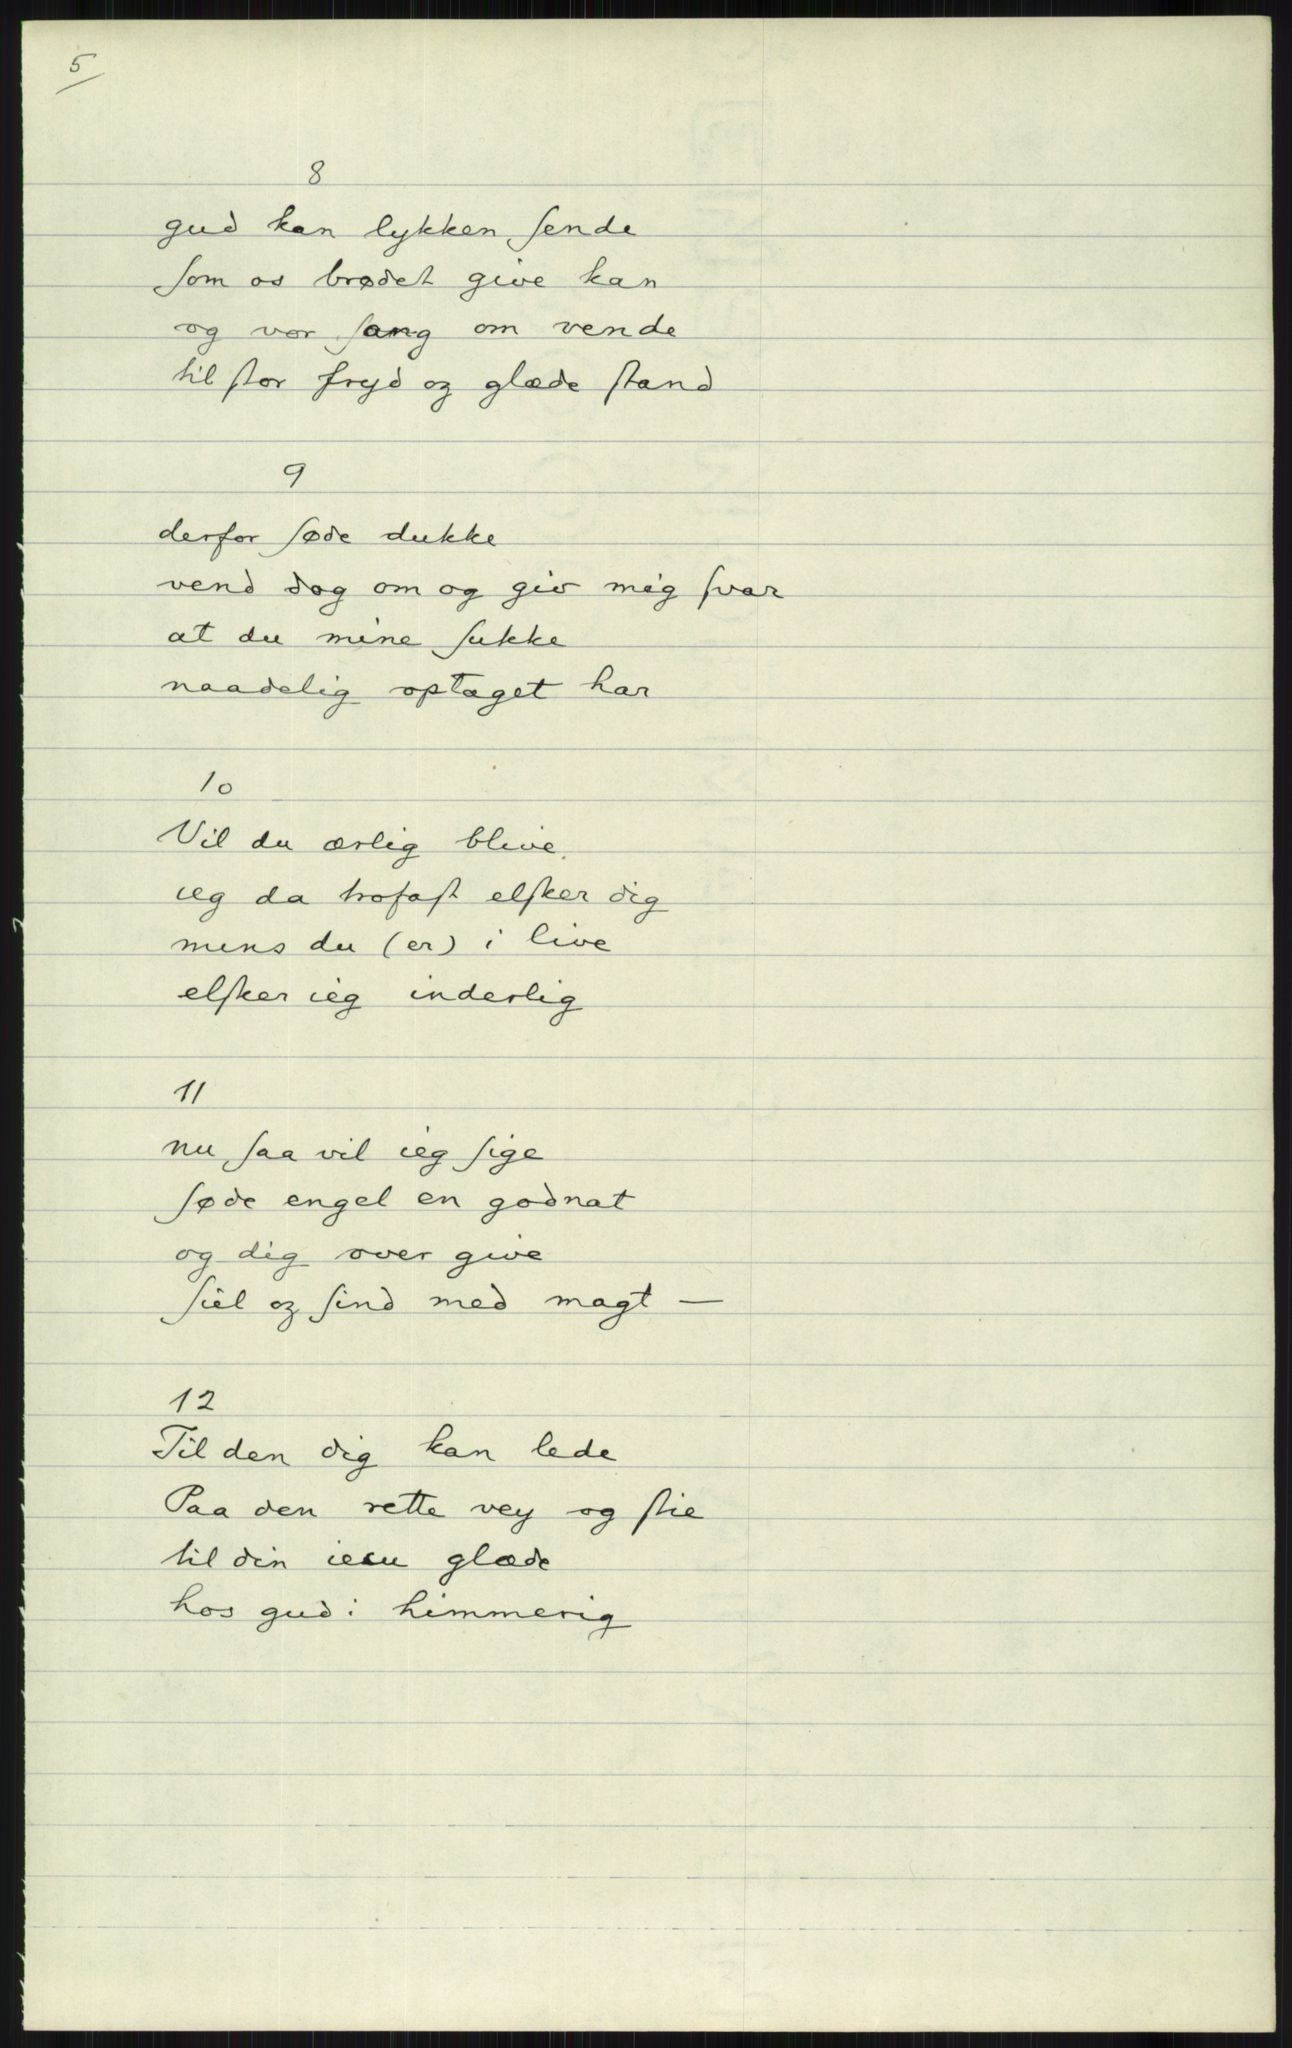 5
8
gud kan lykken sende
som os brødet give kan
og vor sang om vende
til stor fryd og glæde stand
9
derfor søde dukke
vend dog om og giv mig svar
at du mine sukke
naadelig optaget har
10
Vil du ærlig blive
ieg da trofast elsker dig
mens du (er) i live
elsker ieg inderlig
11
nu saa vil ieg sige
søde engel en godnat
og dig over give
siel og sind med magt —
12
Til den dig kan lede
Paa den rette vey og stie
til din iesu glæde
hos gud i himmerig